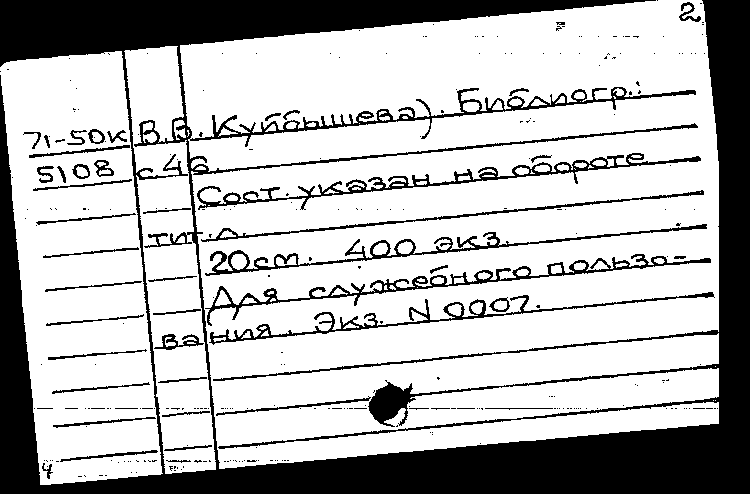 2
71-50к В.В. Куйбышева). Библиогр.:
5108 с.46.
Сост. указан на обороте
тит. л.
20см. 400 экз.
Для служебного пользо-
вания. Экз. N 0007.
4